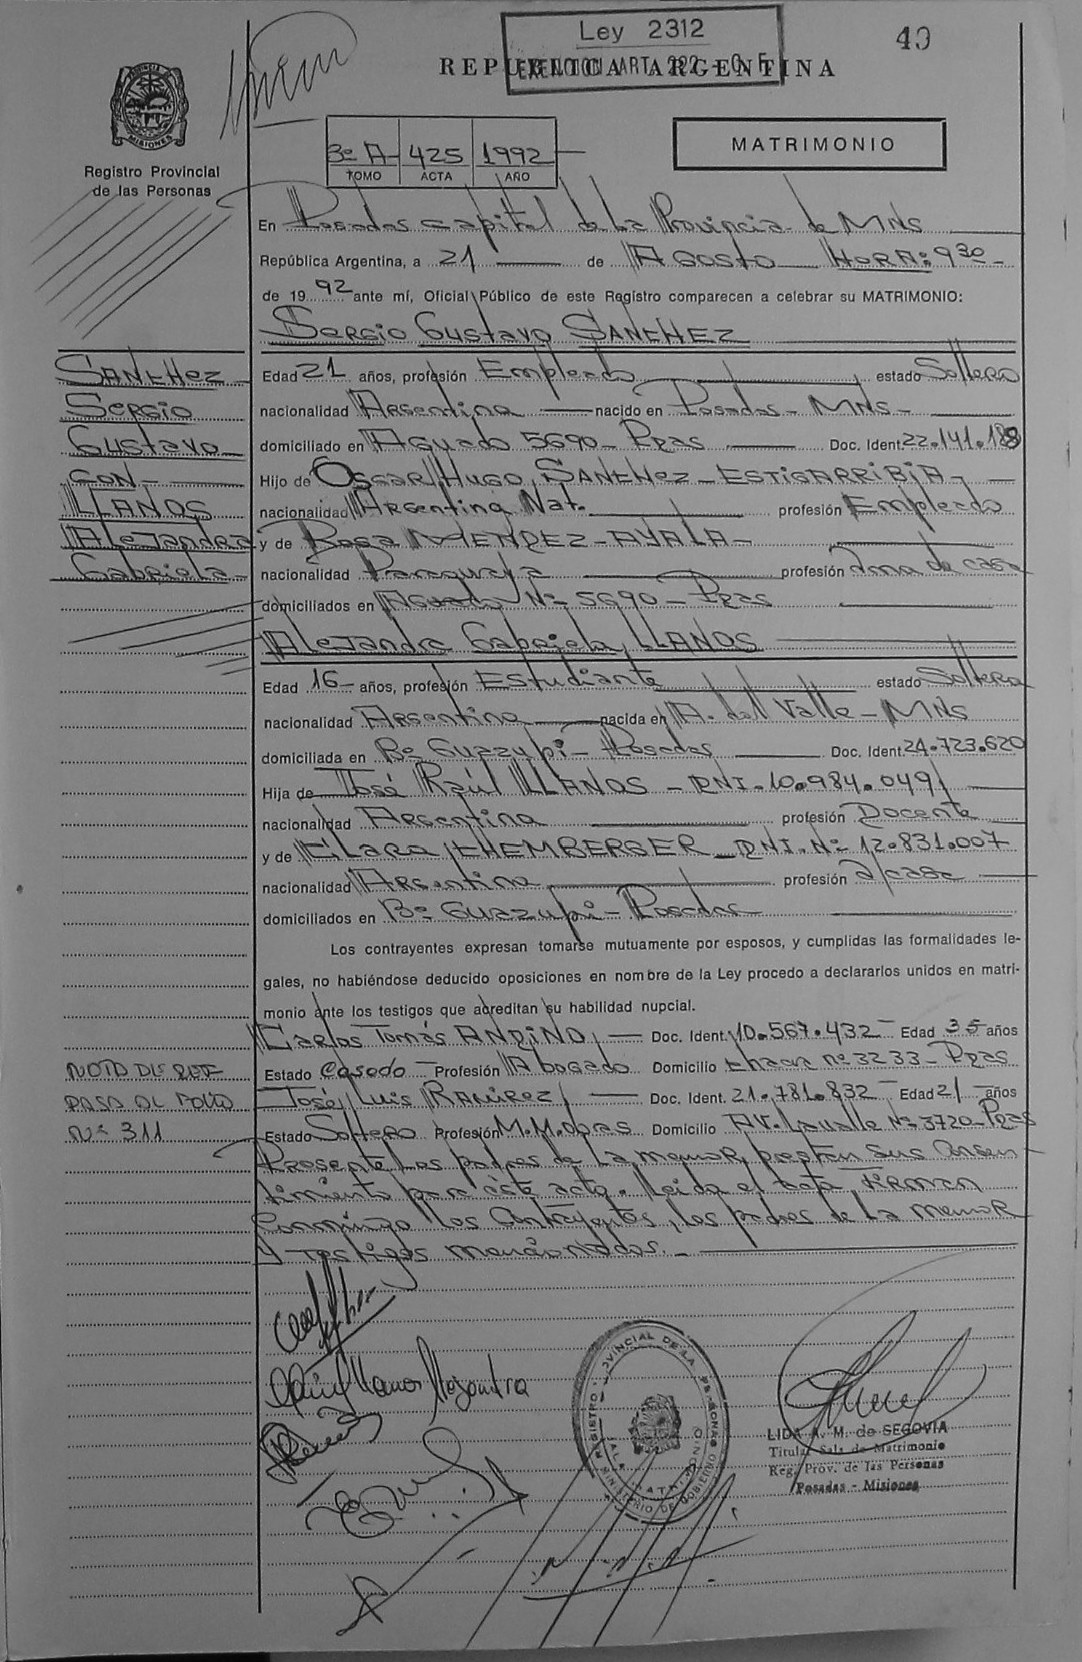 Ley 2312
EXENCION ART. 292
49
REPUBLICA ARGENTINA
MISIONES
Registro Provincial
de las Personas
3º A 425 1992
TOMO ACTA AÑO
MATRIMONIO
En Posadas capital de La Provincia de Mnes
República Argentina, a 21 de Agosto Hora: 9 30
de 19 92 ante mí, Oficial Público de este Registro comparecen a celebrar su MATRIMONIO:
Sergio Gustavo SANCHEZ
Edad 21 años, profesión Empleado estado Soltero
nacionalidad Argentina nacido en Posadas - Mnes -
domiciliado en Aguado 5690 - Pzas Doc. Ident. 22.141.188
Hijo de Oscar Hugo SANCHEZ - ESTIGARRIBIA -
nacionalidad Argentina Nat. profesión Empleado
y de Rosa MENDEZ - AYALA -
nacionalidad Paraguaya profesión Ama de casa
domiciliados en Aguado Nº 5690 - Pzas
Alejandra Gabriela LLANOS
Edad 16 - años, profesión Estudiante estado Soltera
nacionalidad Argentina nacida en A. del Valle - Mns
domiciliada en Bº Guazupi - Posadas Doc. Ident. 24.723.620
Hija de José Raúl LLANOS - DNI. 10.984.049
nacionalidad Argentina profesión Docente
y de Clara HEMBERGER - DNI. Nº 12.831.007
nacionalidad Argentina profesión a/casa
domiciliados en Bº Guazupi - Posadas
Los contrayentes expresan tomarse mutuamente por esposos, y cumplidas las formalidades le-
gales, no habiéndose deducido oposiciones en nombre de la Ley procedo a declararlos unidos en matri-
monio ante los testigos que acreditan su habilidad nupcial.
Carlos Tomás ANDINO, Doc. Ident. 10.567.432 - Edad 35 años
Estado Casado - Profesión Abogado Domicilio Chaca nº 3233 - Pzas
José Luis RAMIREZ Doc. Ident. 21.781.832 - Edad 21 años
Estado Soltero Profesión M.M.Obras Domicilio AV. Lavalle Nº 3720 - Pzas
Presente Los padres de La menor, prestan sus Consen-
timiento para este acto. Leida el acta, Firman
Conmingo los Contrayentes, los padres de La menor
y Testigos mencionados. -
SANCHEZ
Sergio
Gustavo
CON -
LLANOS
Alejandra
Gabriela
NOTA DE REF
PASA AL FOLIO
Nº 311
Llanos Alejandra
REGISTRO PROVINCIAL DE LAS PERSONAS
MINISTERIO DE GOBIERNO
LIDA A. M. de SEGOVIA
Titular Sala de Matrimonio
Reg. Prov. de las Personas
Posadas - Misiones